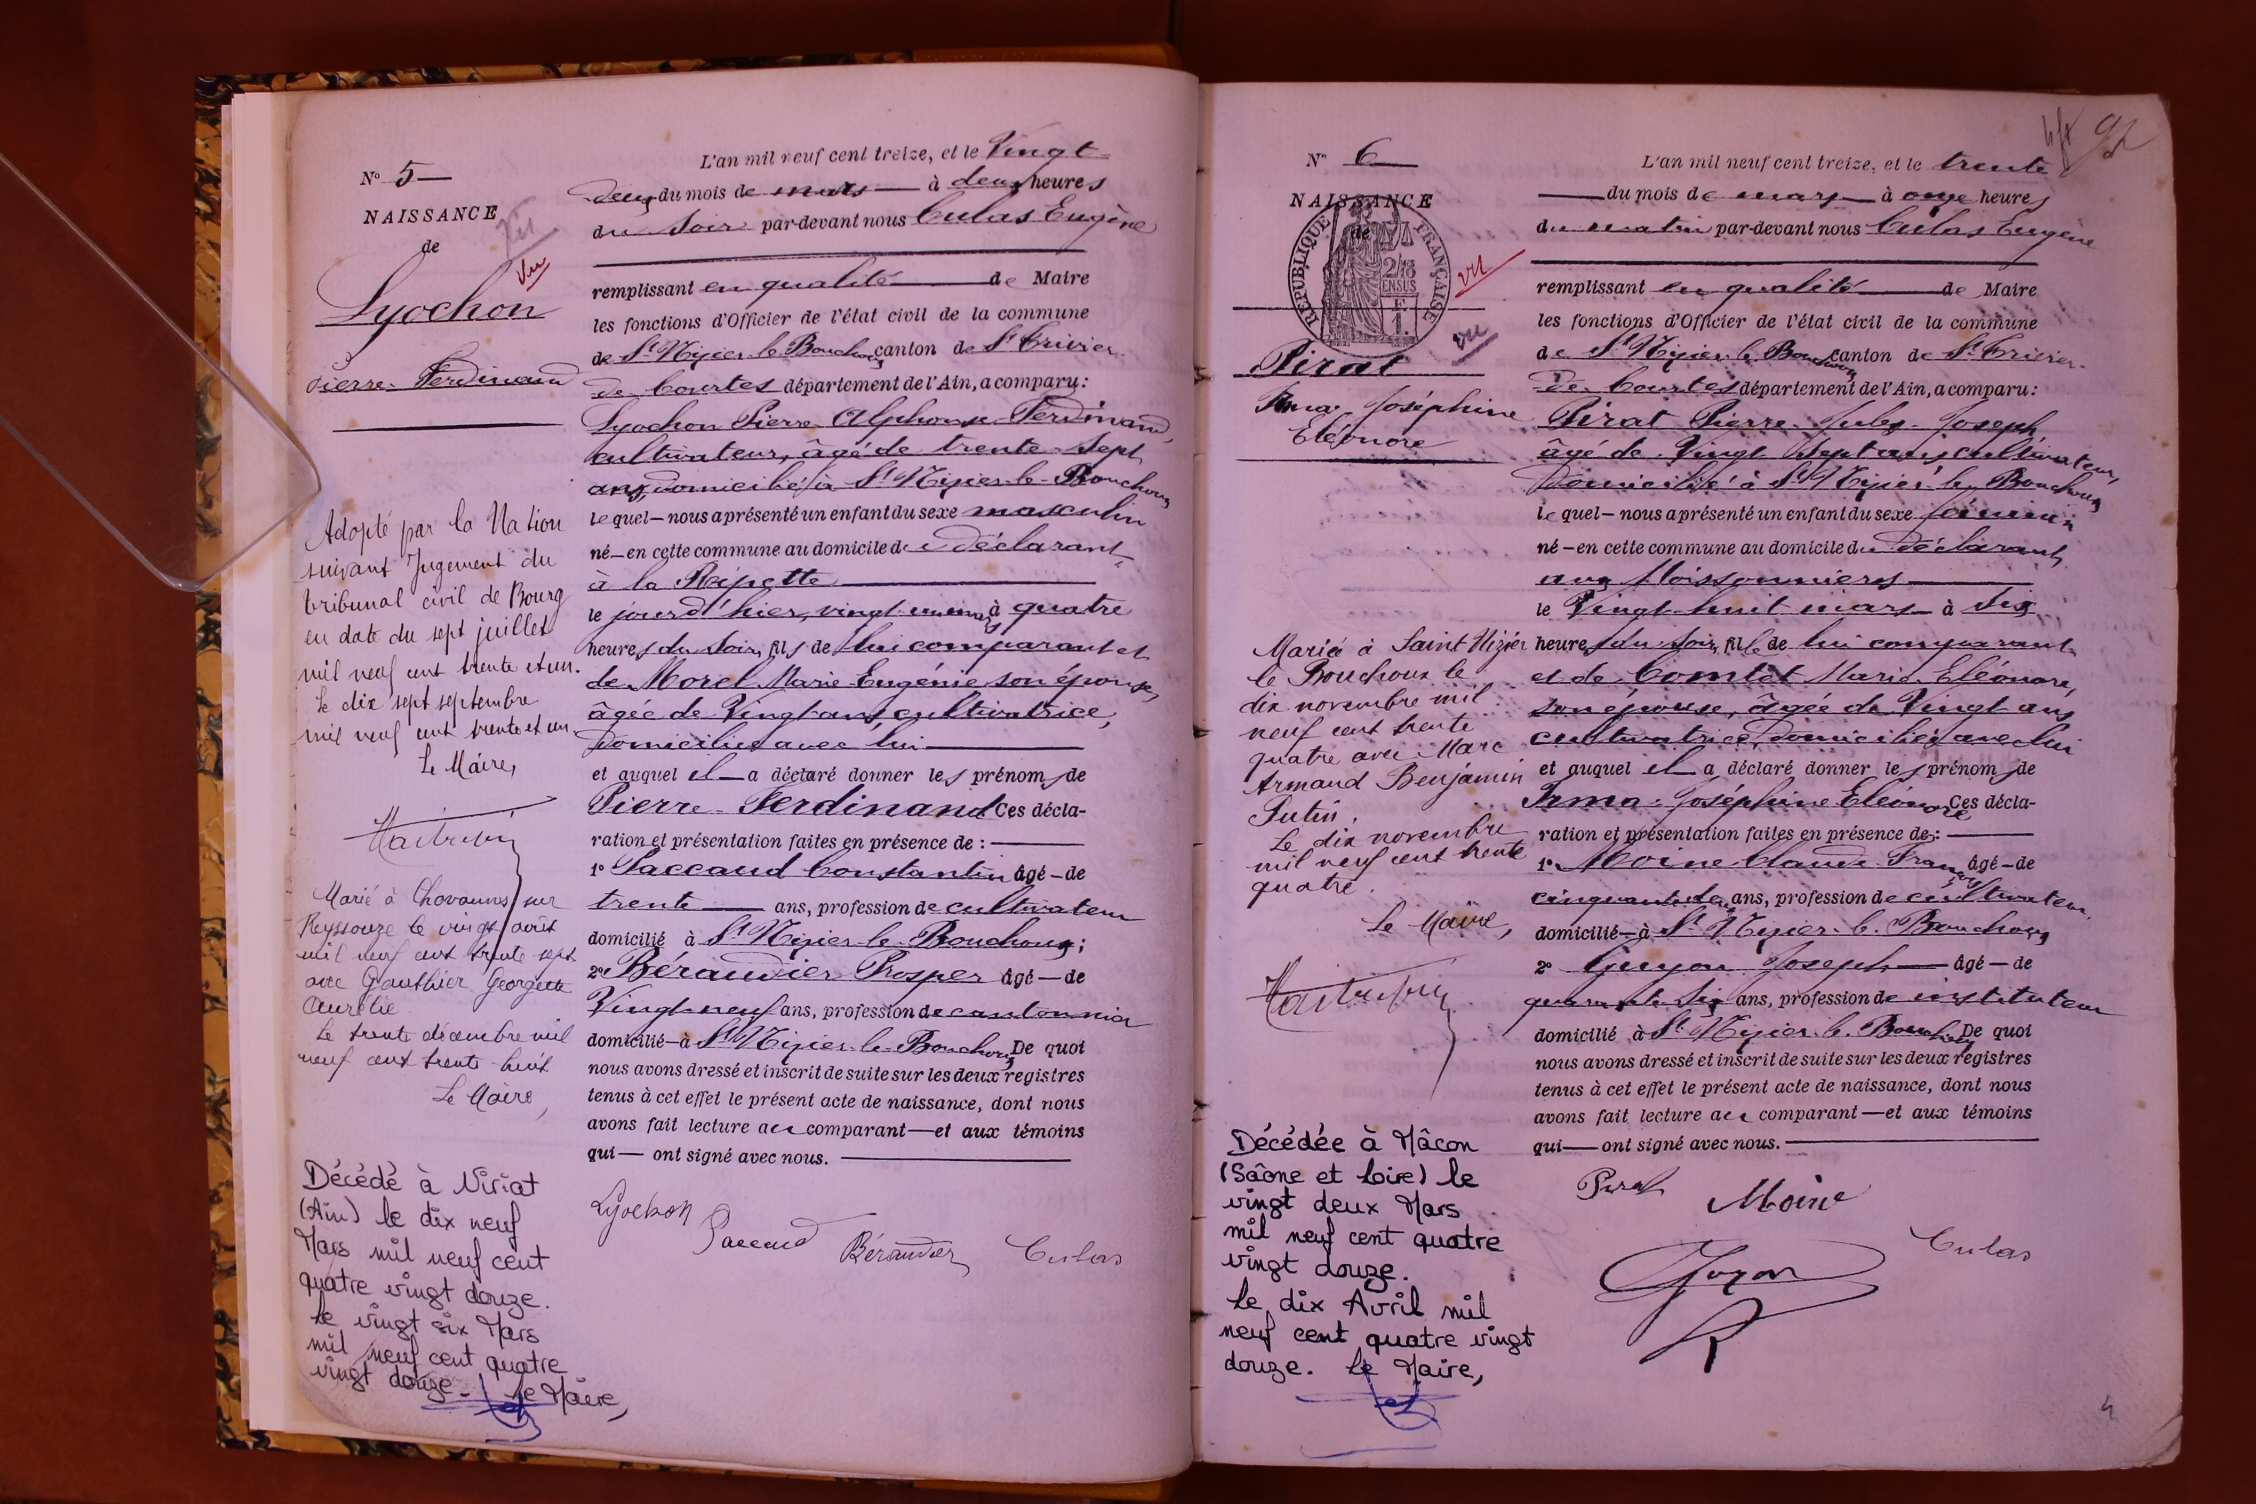 N° 5
NAISSANCE
de
Vu
Lyochon
Pierre Ferdinand
Adopté par la Nation
suivant Jugement du
tribunal civil de Bourg
en date du sept juillet
mil neuf cent trente et un.
Le dix sept septembre
mil neuf cent trente et un.
Le Maire,
Marié à Chavannes sur
Reyssouze le vingt août
mil neuf cent trente sept
avec Gauthier Georgette
Aurélie
Le trente décembre mil
neuf cent trente huit
Le Maire,
Décédé à Viriat
(Ain) le dix neuf
Mars mil neuf cent
quatre vingt douze.
Le vingt six Mars
mil neuf cent quatre
vingt douze. Le Maire,
L'an mil neuf cent treize, et le Vingt-
deux du mois de mars à deux heures
du soir par-devant nous Culas Eugène
remplissant en qualité de Maire
les fonctions d'Officier de l'état civil de la commune
de St Nizier-le-Bouchoux canton de St Trivier
de Courtes département de l'Ain, a comparu:
Lyochon Pierre Alphonse Ferdinand,
cultivateur, âgé de trente-sept
ans, domicilié à St Nizier-le-Bouchoux
lequel nous a présenté un enfant du sexe masculin
né en cette commune au domicile du déclarant
à la Ripette
le jour d'hier, vingt-un mars à quatre
heures du soir, fils de lui comparant et
de Morel Marie-Eugénie son épouse,
âgée de Vingt ans, cultivatrice,
domiciliée avec lui
et auquel il a déclaré donner les prénoms de
Pierre-Ferdinand Ces décla-
ration et présentation faites en présence de :
1° Paccaud Constantin âgé de
trente ans, profession de cultivateur
domicilié à St Nizier-le-Bouchoux;
2° Béraudier Prosper âgé de
Vingt-neuf ans, profession de cantonnier
domicilié à St Nizier-le-Bouchoux De quoi
nous avons dressé et inscrit de suite sur les deux registres
tenus à cet effet le présent acte de naissance, dont nous
avons fait lecture au comparant et aux témoins
qui ont signé avec nous.
Lyochon Paccaud Béraudier Culas
N° 6
NAISSANCE
de
RÉPUBLIQUE FRANÇAISE
2/10
EN SUS
F
1.
vu
vu
Pirat
Irma Joséphine
Eléonore
Mariée à Saint Nizier
le Bouchoux le
dix novembre mil
neuf cent trente
quatre avec Marc
Armand Benjamin
Putin.
Le dix novembre
mil neuf cent trente
quatre.
Le Maire,
Décédée à Mâcon
(Saône et Loire) le
vingt deux Mars
mil neuf cent quatre
vingt douze.
Le dix Avril mil
neuf cent quatre vingt
douze. Le Maire,
L'an mil neuf cent treize, et le trente
du mois de mars à onze heures
du matin par-devant nous Culas Eugène
remplissant en qualité de Maire
les fonctions d'Officier de l'état civil de la commune
de St Nizier-le-Bouchoux canton de St Trivier
de Courtes département de l'Ain, a comparu:
Pirat Pierre Jules Joseph
âgé de Vingt sept ans, cultivateur,
domicilié à St Nizier-le-Bouchoux
lequel nous a présenté un enfant du sexe féminin
né en cette commune au domicile du déclarant
aux Moissonnieres
le Vingt-huit mars à six
heures du soir, fille de lui comparant
et de Comtet Marie Eléonore,
son épouse, âgée de Vingt ans
cultivatrice, domiciliée avec lui
et auquel il a déclaré donner les prénoms de
Irma-Joséphine Eléonore Ces décla-
ration et présentation faites en présence de :
1° Moine Claude François âgé de
cinquante deux ans, profession de cultivateur
domicilié à St Nizier-le-Bouchoux
2° Guyon Joseph âgé de
quarante six ans, profession de instituteur
domicilié à St Nizier-le-Bouchoux De quoi
nous avons dressé et inscrit de suite sur les deux registres
tenus à cet effet le présent acte de naissance, dont nous
avons fait lecture au comparant et aux témoins
qui ont signé avec nous.
Pirat Moine
Culas